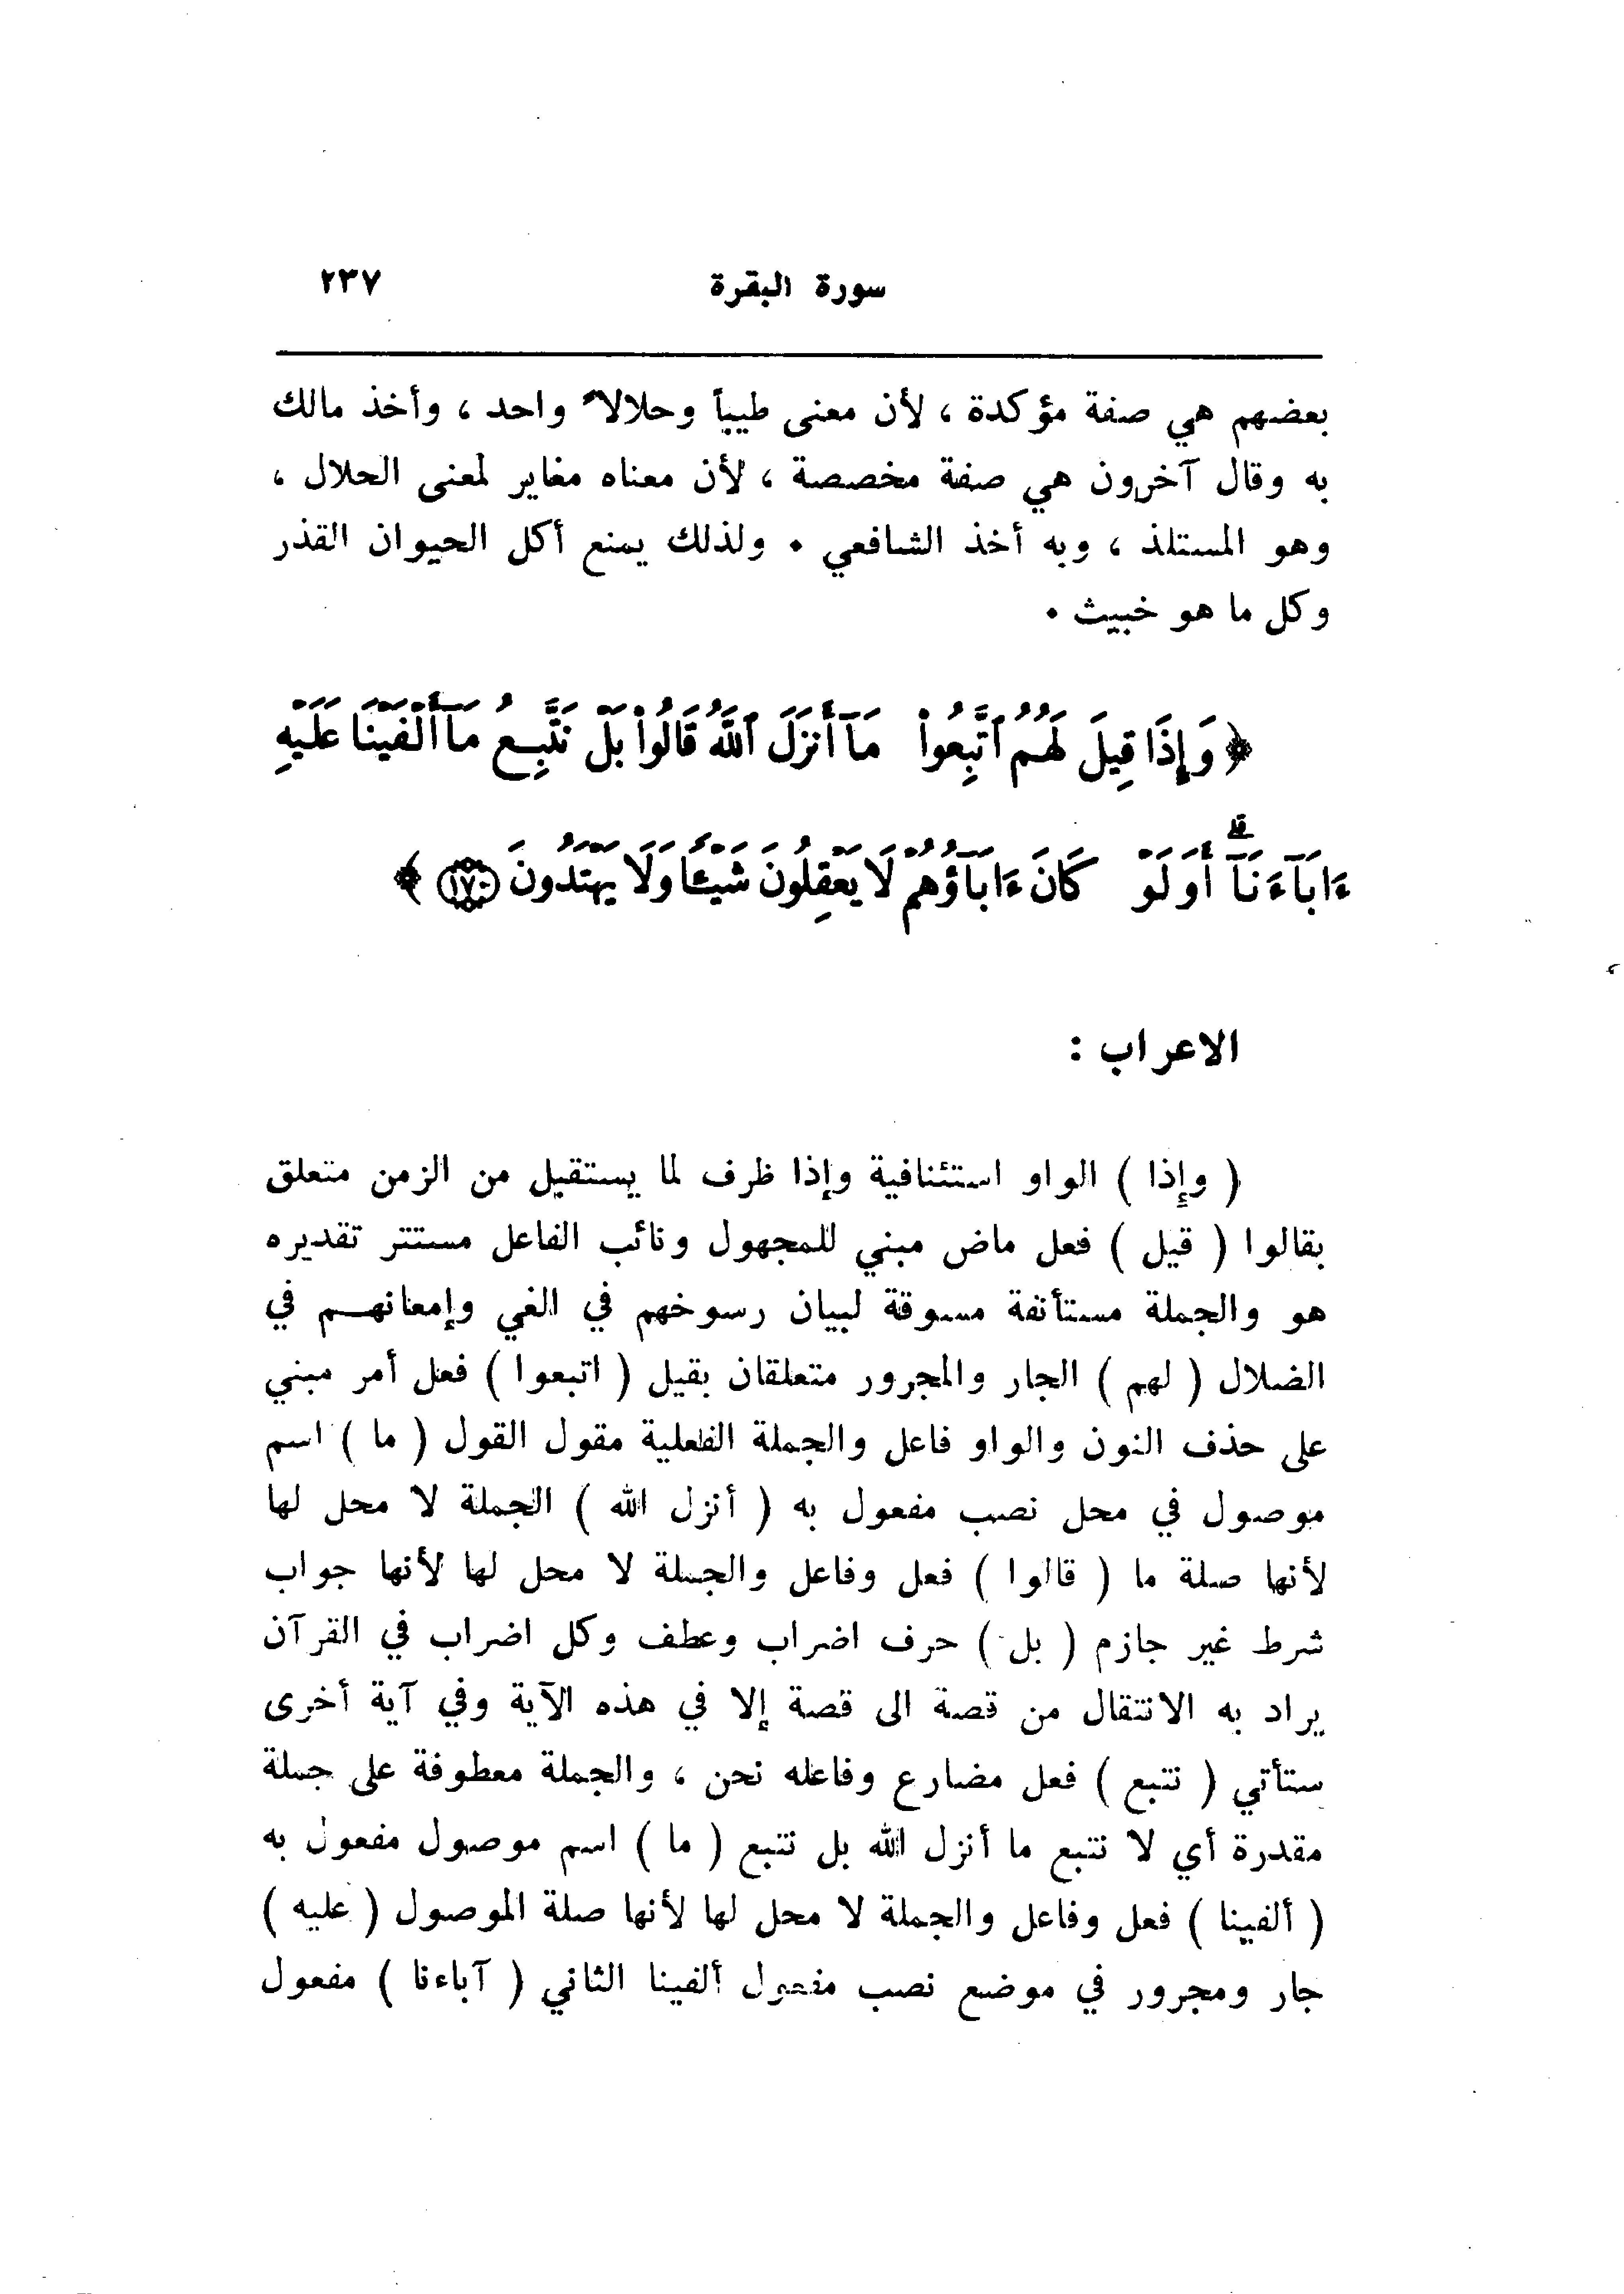 سورة البقرة ٢٣٧
بعضهم هي صفة مؤكدة ، لأن معنى طيباً وحلالاً واحد ، وأخذ مالك
به وقال آخرون هي صفة مخصصة ، لأن معناه مغاير لمعنى الحلال ،
وهو المستلذ ، وبه أخذ الشافعي . ولذلك يمنع أكل الحيوان القذر
وكل ما هو خبيث .
﴿ وَإِذَا قِيلَ لَهُمُ ٱتَّبِعُوا۟ مَآ أَنزَلَ ٱللَّهُ قَالُوا۟ بَلْ نَتَّبِعُ مَآ أَلْفَيْنَا عَلَيْهِ
ءَابَآءَنَآ ۗ أَوَلَوْ كَانَ ءَابَآؤُهُمْ لَا يَعْقِلُونَ شَيْـًٔا وَلَا يَهْتَدُونَ ١٧٠ ﴾
الاعراب :
( وإذا ) الواو استئنافية وإذا ظرف لما يستقبل من الزمن متعلق
بقالوا ( قيل ) فعل ماض مبني للمجهول ونائب الفاعل مستتر تقديره
هو والجملة مستأنفة مسوقة لبيان رسوخهم في الغي وإمعانهم في
الضلال ( لهم ) الجار والمجرور متعلقان بقيل ( اتبعوا ) فعل أمر مبني
على حذف النون والواو فاعل والجملة الفعلية مقول القول ( ما ) اسم
موصول في محل نصب مفعول به ( أنزل الله ) الجملة لا محل لها
لأنها صلة ما ( قالوا ) فعل وفاعل والجملة لا محل لها لأنها جواب
شرط غير جازم ( بل ) حرف اضراب وعطف وكل اضراب في القرآن
يراد به الانتقال من قصة الى قصة إلا في هذه الآية وفي آية أخرى
ستأتي ( نتبع ) فعل مضارع وفاعله نحن ، والجملة معطوفة على جملة
مقدرة أي لا نتبع ما أنزل الله بل نتبع ( ما ) اسم موصول مفعول به
( ألفينا ) فعل وفاعل والجملة لا محل لها لأنها صلة الموصول ( عليه )
جار ومجرور في موضع نصب مفعول ألفينا الثاني ( آباءنا ) مفعول